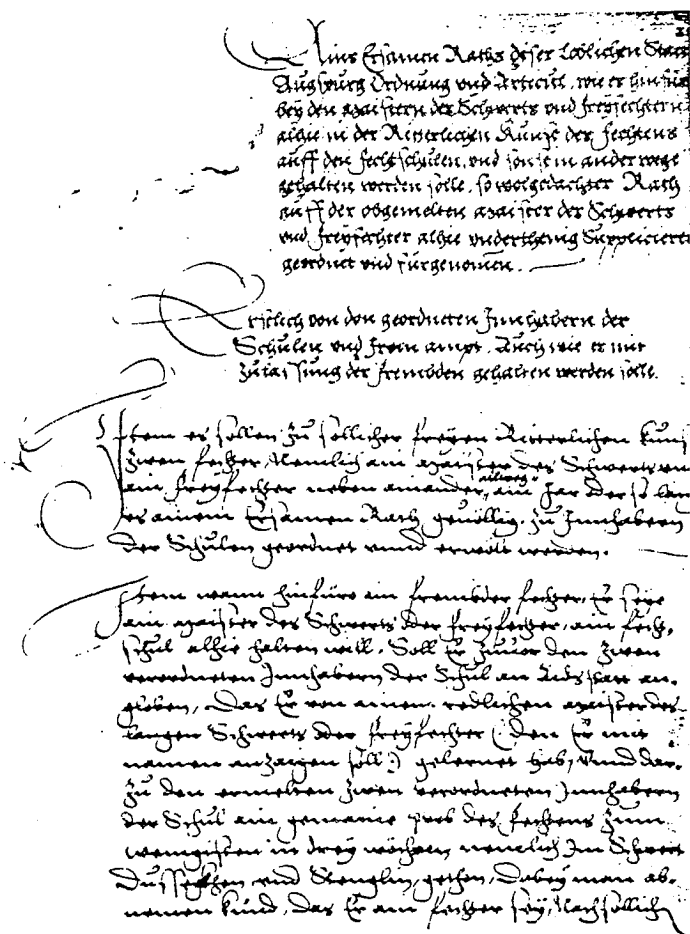 Ains Ersamen Raths diser Loblichen Statt
Augspurg Ordnung vnd Articul, wie es hinfüro
bey den maistern des Schwerts vnd freyfechtern
alhie in der Ritterlichen Kunst des fechtens
auff den fechtschulen, vnd sonst in ander wege
gehalten werden solle, so wolgedachter Rath
auff der obgemelten maister des Schwerts
vnd freyfechter alhie vnderthenig Suppliciern
geordnet vnd fürgenomen.
Erstlich von den geordneten Innhabern der
Schulen vnd irem ampt. Auch wie es mit
Zulassung der frembden gehalten werden solle.
Item es sollen zu sollicher freyen Ritterlichen kunst
zwen fechter, Nemlich ain maister des Schwerts vn
ain freyfechter neben ainander, allweg ain Jar oder so lang
es ainem Ersamen Rath geuöllig, zu Innhabern
der Schulen geordnet vnnd erwölt werden.
Item wann hinfüro ain frembder fechter, Er seye
ain maister des Schwerts oder freyfechter, ain fecht-
schul alhie halten will, Soll Er zuuor den zwen
verordneten Innhabern der Schul an Aidsstatt an-
globen, Das Er von ainem redlichen maister des
Langen Schwerts oder freyfechter (: den Er mit
namen anzaigen soll :) gelernet hab, vnnd dar-
zu den ermelten zwen verordneten Innhabern
der Schul ain gemaine prob des fechtens zum
wenigisten in drey wöhern, nemlich Im Schwert
Dussegkhen, vnd Stenglin, gethon, Dabey man ab-
nemen kund, das Er ain fechter sey, Nach sollich